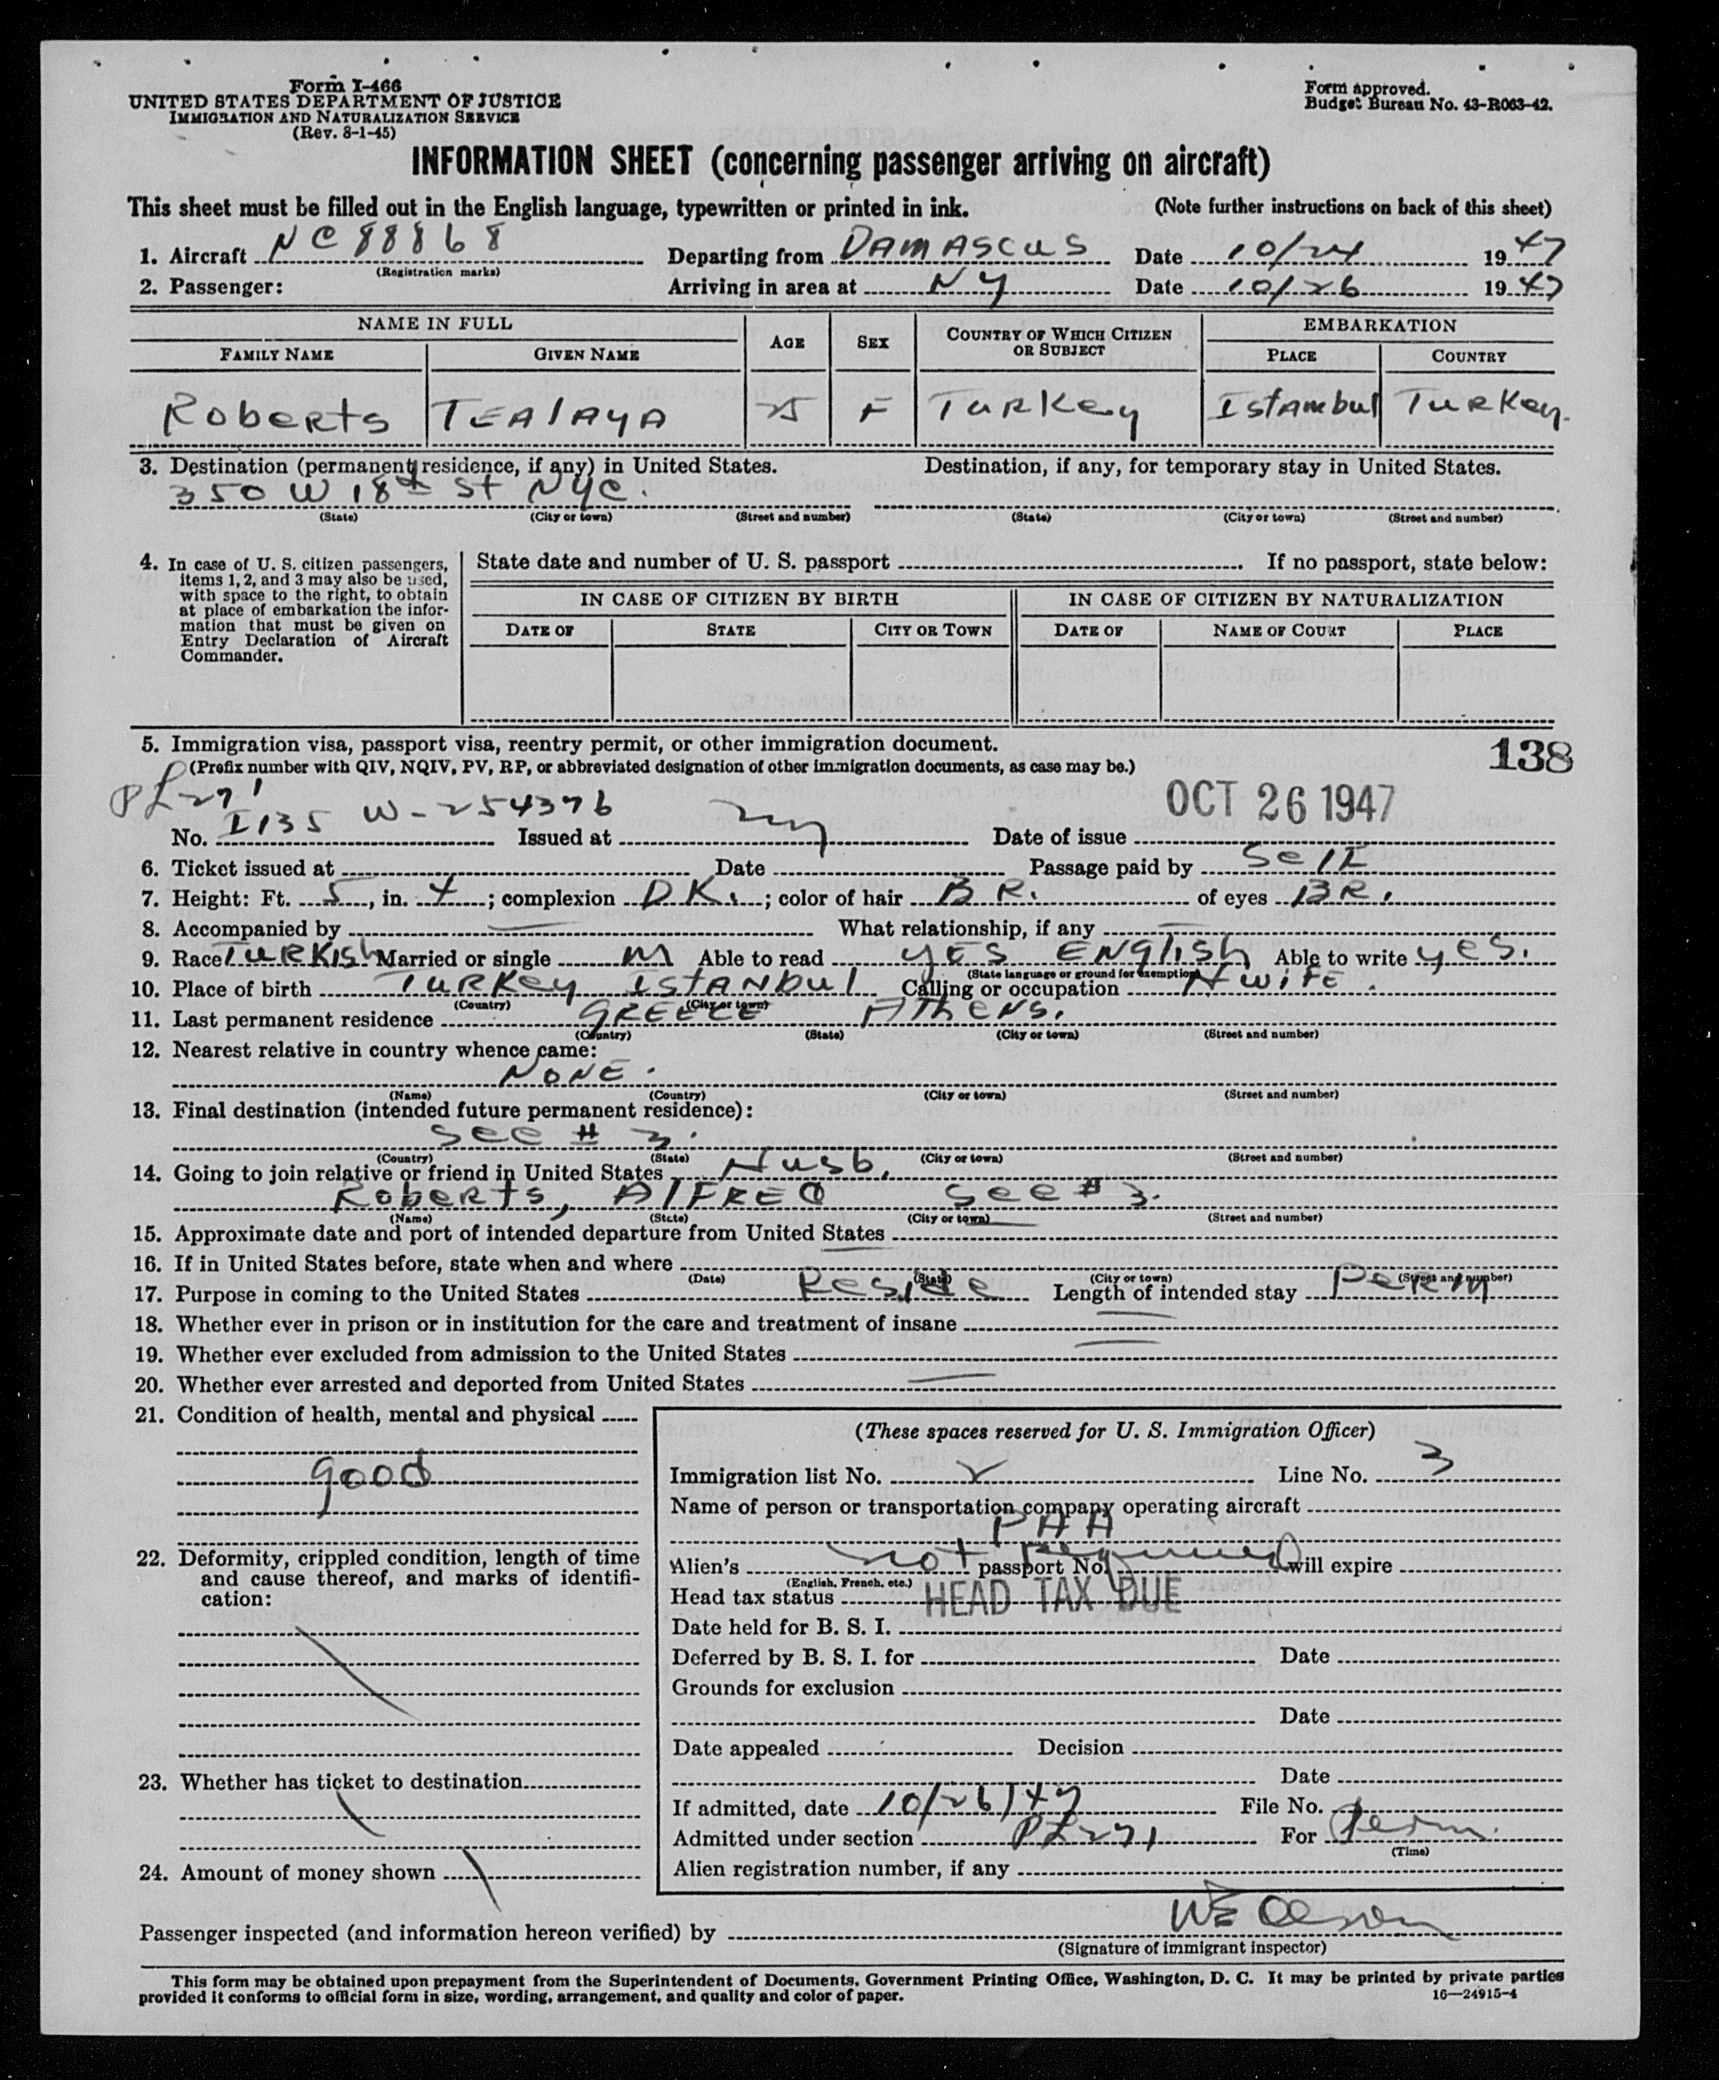 Form I-466
UNITED STATES DEPARTMENT OF JUSTICE
IMMIGRATION AND NATURALIZATION SERVICE
(Rev. 8-1-45)
Form approved.
Budget Bureau No. 43-R063-42.
INFORMATION SHEET (concerning passenger arriving on aircraft)
This sheet must be filled out in the English language, typewritten or printed in ink. (Note further instructions on back of this sheet)
1. Aircraft NC88868 Departing from DAMASCUS Date 10/24 1947
(Registration marks)
2. Passenger: Arriving in area at NY Date 10/26 1947
NAME IN FULL AGE SEX COUNTRY OF WHICH CITIZEN OR SUBJECT EMBARKATION
FAMILY NAME GIVEN NAME PLACE COUNTRY
Roberts TEAlAYA 25 F Turkey Istambul Turkey.
3. Destination (permanent residence, if any) in United States. Destination, if any, for temporary stay in United States.
350 W 18th St NYC.
(State) (City or town) (Street and number) (State) (City or town) (Street and number)
4. In case of U. S. citizen passengers, items 1, 2, and 3 may also be used, with space to the right, to obtain at place of embarkation the information that must be given on Entry Declaration of Aircraft Commander.
State date and number of U. S. passport If no passport, state below:
IN CASE OF CITIZEN BY BIRTH IN CASE OF CITIZEN BY NATURALIZATION
DATE OF STATE CITY OR TOWN DATE OF NAME OF COURT PLACE
5. Immigration visa, passport visa, reentry permit, or other immigration document. 138
(Prefix number with QIV, NQIV, PV, RP, or abbreviated designation of other immigration documents, as case may be.)
PL271
No. I135 W-254376 Issued at NY Date of issue OCT 26 1947
6. Ticket issued at Date Passage paid by Self
7. Height: Ft. 5, in. 4; complexion DK.; color of hair BR. of eyes BR.
8. Accompanied by — What relationship, if any —
9. Race TURKISH Married or single M Able to read YES ENGlISH Able to write yes.
(State language or ground for exemption)
10. Place of birth TURKEY ISTANBUL Calling or occupation HWIFE.
(Country) (City or town)
11. Last permanent residence GREECE AThENS.
(Country) (State) (City or town) (Street and number)
12. Nearest relative in country whence came:
NONE.
(Name) (Country) (City or town) (Street and number)
13. Final destination (intended future permanent residence):
See # 3.
(Country) (State) (City or town) (Street and number)
14. Going to join relative or friend in United States Husb.
Roberts, AlFRED See # 3.
(Name) (State) (City or town) (Street and number)
15. Approximate date and port of intended departure from United States —
16. If in United States before, state when and where —
(Date) (State) (City or town) (Street and number)
17. Purpose in coming to the United States Reside Length of intended stay Perm
18. Whether ever in prison or in institution for the care and treatment of insane —
19. Whether ever excluded from admission to the United States —
20. Whether ever arrested and deported from United States —
21. Condition of health, mental and physical
good
22. Deformity, crippled condition, length of time and cause thereof, and marks of identification:
23. Whether has ticket to destination
24. Amount of money shown
(These spaces reserved for U. S. Immigration Officer)
Immigration list No. Line No. 3
Name of person or transportation company operating aircraft
PAA
Alien's not required passport No. will expire
(English, French, etc.)
Head tax status HEAD TAX DUE
Date held for B. S. I.
Deferred by B. S. I. for Date
Grounds for exclusion
Date
Date appealed Decision
Date
If admitted, date 10/26/47 File No.
Admitted under section PL271 For Perm.
(Time)
Alien registration number, if any
Passenger inspected (and information hereon verified) by WE Olson
(Signature of immigrant inspector)
This form may be obtained upon prepayment from the Superintendent of Documents, Government Printing Office, Washington, D. C. It may be printed by private parties
provided it conforms to official form in size, wording, arrangement, and quality and color of paper. 16—24915-4